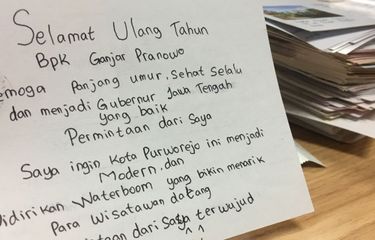 Selamat Ulang Tahun
Bpk Ganjar Pranowo
emoga Panjang umur, Sehat Selalu
dan menjadi Gubernur Jawa Tengah
yang baik
Permintaan dari Saya
Saya ingin Kota Purworejo ini menjadi
Modern, dan
didirikan Waterboom yang bikin menarik
Para Wisatawan datang
dari Saya terwujud